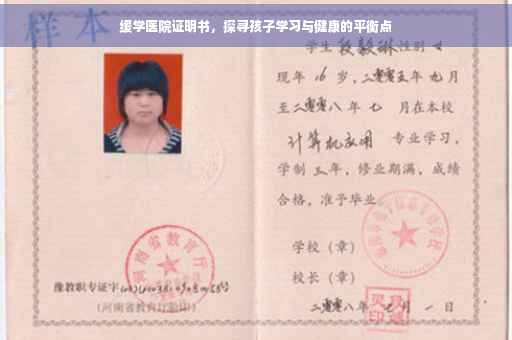 缓学医院证明书，探寻孩子学习与健康的平衡点
样本
学生段毅琳性别女
现年16岁，二零零五年九月
至二零零八年七月在本校
计算机应用专业学习，
学制三年，修业期满，成绩
合格，准予毕业。
学校（章）
校长（章）
二零零八年七月一日
河南省教育厅
豫教职专证字
（河南省教育厅验印）